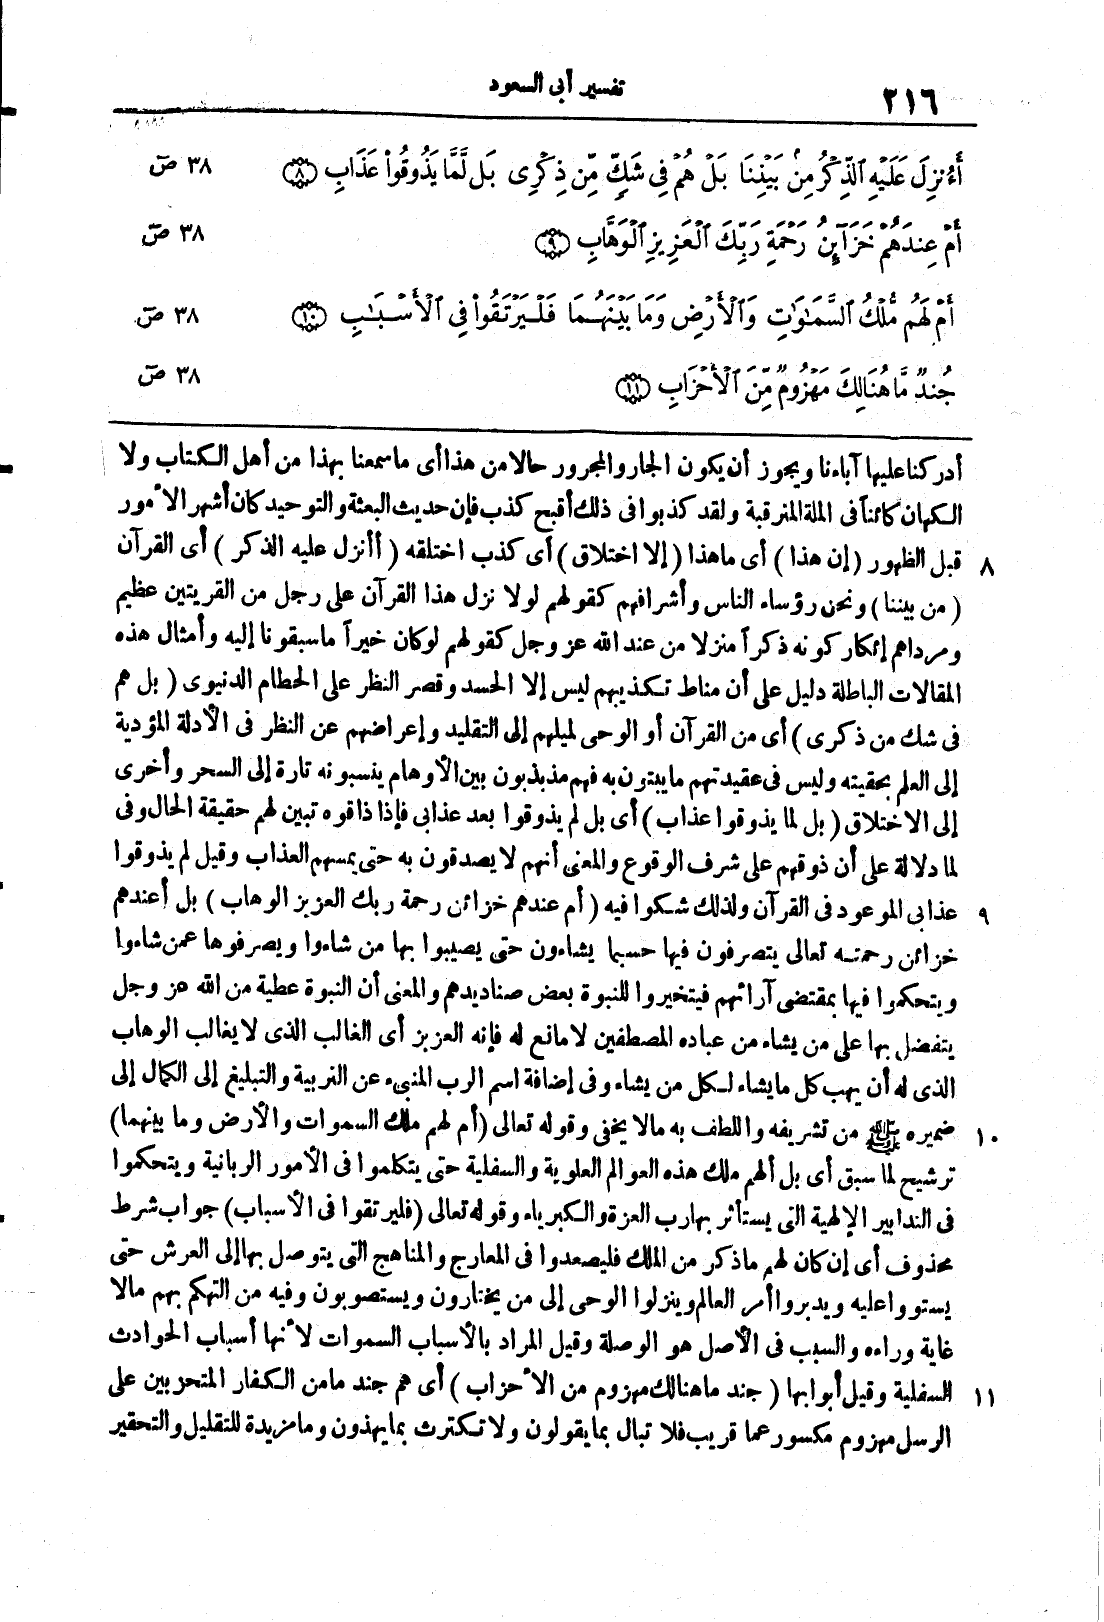 ٢١٦
تفسير أبى السعود
أَءُنزِلَ عَلَيْهِ ٱلذِّكْرُ مِنۢ بَيْنِنَا بَلْ هُمْ فِى شَكٍّ مِّن ذِكْرِى بَل لَّمَّا يَذُوقُوا۟ عَذَابِ ﴿٨﴾ ٣٨ صٓ
أَمْ عِندَهُمْ خَزَآئِنُ رَحْمَةِ رَبِّكَ ٱلْعَزِيزِ ٱلْوَهَّابِ ﴿٩﴾ ٣٨ صٓ
أَمْ لَهُم مُّلْكُ ٱلسَّمَـٰوَٰتِ وَٱلْأَرْضِ وَمَا بَيْنَهُمَا فَلْيَرْتَقُوا۟ فِى ٱلْأَسْبَـٰبِ ﴿١٠﴾ ٣٨ صٓ
جُندٌ مَّا هُنَالِكَ مَهْزُومٌ مِّنَ ٱلْأَحْزَابِ ﴿١١﴾ ٣٨ صٓ
أدركنا عليها آباءنا ويجوز أن يكون الجار والمجرور حالا من هذا أى ما سمعنا بهذا من أهل الكتاب ولا
الكهان كائناً فى الملة المترقبة ولقد كذبوا فى ذلك أقبح كذب فإن حديث البعثة والتوحيد كان أشهر الأمور
٨ قبل الظهور (إن هذا) أى ما هذا (إلا اختلاق) أى كذب اختلقه (أأنزل عليه الذكر) أى القرآن
(من بيننا) ونحن رؤساء الناس وأشرافهم كقولهم لولا نزل هذا القرآن على رجل من القريتين عظيم
ومرداهم إنكار كونه ذكراً منزلا من عند الله عز وجل كقولهم لو كان خيراً ما سبقونا إليه وأمثال هذه
المقالات الباطلة دليل على أن مناط تكذيبهم ليس إلا الحسد وقصر النظر على الحطام الدنيوى (بل هم
فى شك من ذكرى) أى من القرآن أو الوحى لميلهم إلى التقليد وإعراضهم عن النظر فى الأدلة المؤدية
إلى العلم بحقيته وليس فى عقيدتهم ما يبتون به فهم مذبذبون بين الأوهام ينسبونه تارة إلى السحر وأخرى
إلى الاختلاق (بل لما يذوقوا عذاب) أى بل لم يذوقوا بعد عذابى فإذا ذاقوه تبين لهم حقيقة الحال وفى
لما دلالة على أن ذوقهم على شرف الوقوع والمعنى أنهم لا يصدقون به حتى يمسهم العذاب وقيل لم يذوقوا
٩ عذابى الموعود فى القرآن ولذلك شكوا فيه (أم عندهم خزائن رحمة ربك العزيز الوهاب) بل أعندهم
خزائن رحمته تعالى يتصرفون فيها حسبما يشاءون حتى يصيبوا بها من شاءوا ويصرفوها عمن شاءوا
ويتحكموا فيها بمقتضى آرائهم فيتخيروا للنبوة بعض صناديدهم والمعنى أن النبوة عطية من الله عز وجل
يتفضل بها على من يشاء من عباده المصطفين لا مانع له فإنه العزيز أى الغالب الذى لا يغالب الوهاب
الذى له أن يهب كل ما يشاء لكل من يشاء وفى إضافة اسم الرب المنبىء عن التربية والتبليغ إلى الكمال إلى
١٠ ضميره ﷺ من تشريفه واللطف به مالا يخفى وقوله تعالى (أم لهم ملك السموات والأرض وما بينهما)
ترشيح لما سبق أى بل ألهم ملك هذه العوالم العلوية والسفلية حتى يتكلموا فى الأمور الربانية ويتحكموا
فى التدابير الإلهية التى يستأثر بها رب العزة والكبرياء وقوله تعالى (فليرتقوا فى الأسباب) جواب شرط
محذوف أى إن كان لهم ما ذكر من الملك فليصعدوا فى المعارج والمناهج التى يتوصل بها إلى العرش حتى
يستووا عليه ويدبروا أمر العالم وينزلوا الوحى إلى من يختارون ويستصوبون وفيه من التهكم بهم مالا
غاية وراءه والسبب فى الأصل هو الوصلة وقيل المراد بالأسباب السموات لأنها أسباب الحوادث
١١ السفلية وقيل أبوابها (جند ما هنالك مهزوم من الأحزاب) أى هم جند ما من الكفار المتحزبين على
الرسل مهزوم مكسور عما قريب فلا تبال بما يقولون ولا تكترث بما يهذون وما مزيدة للتقليل والتحقير